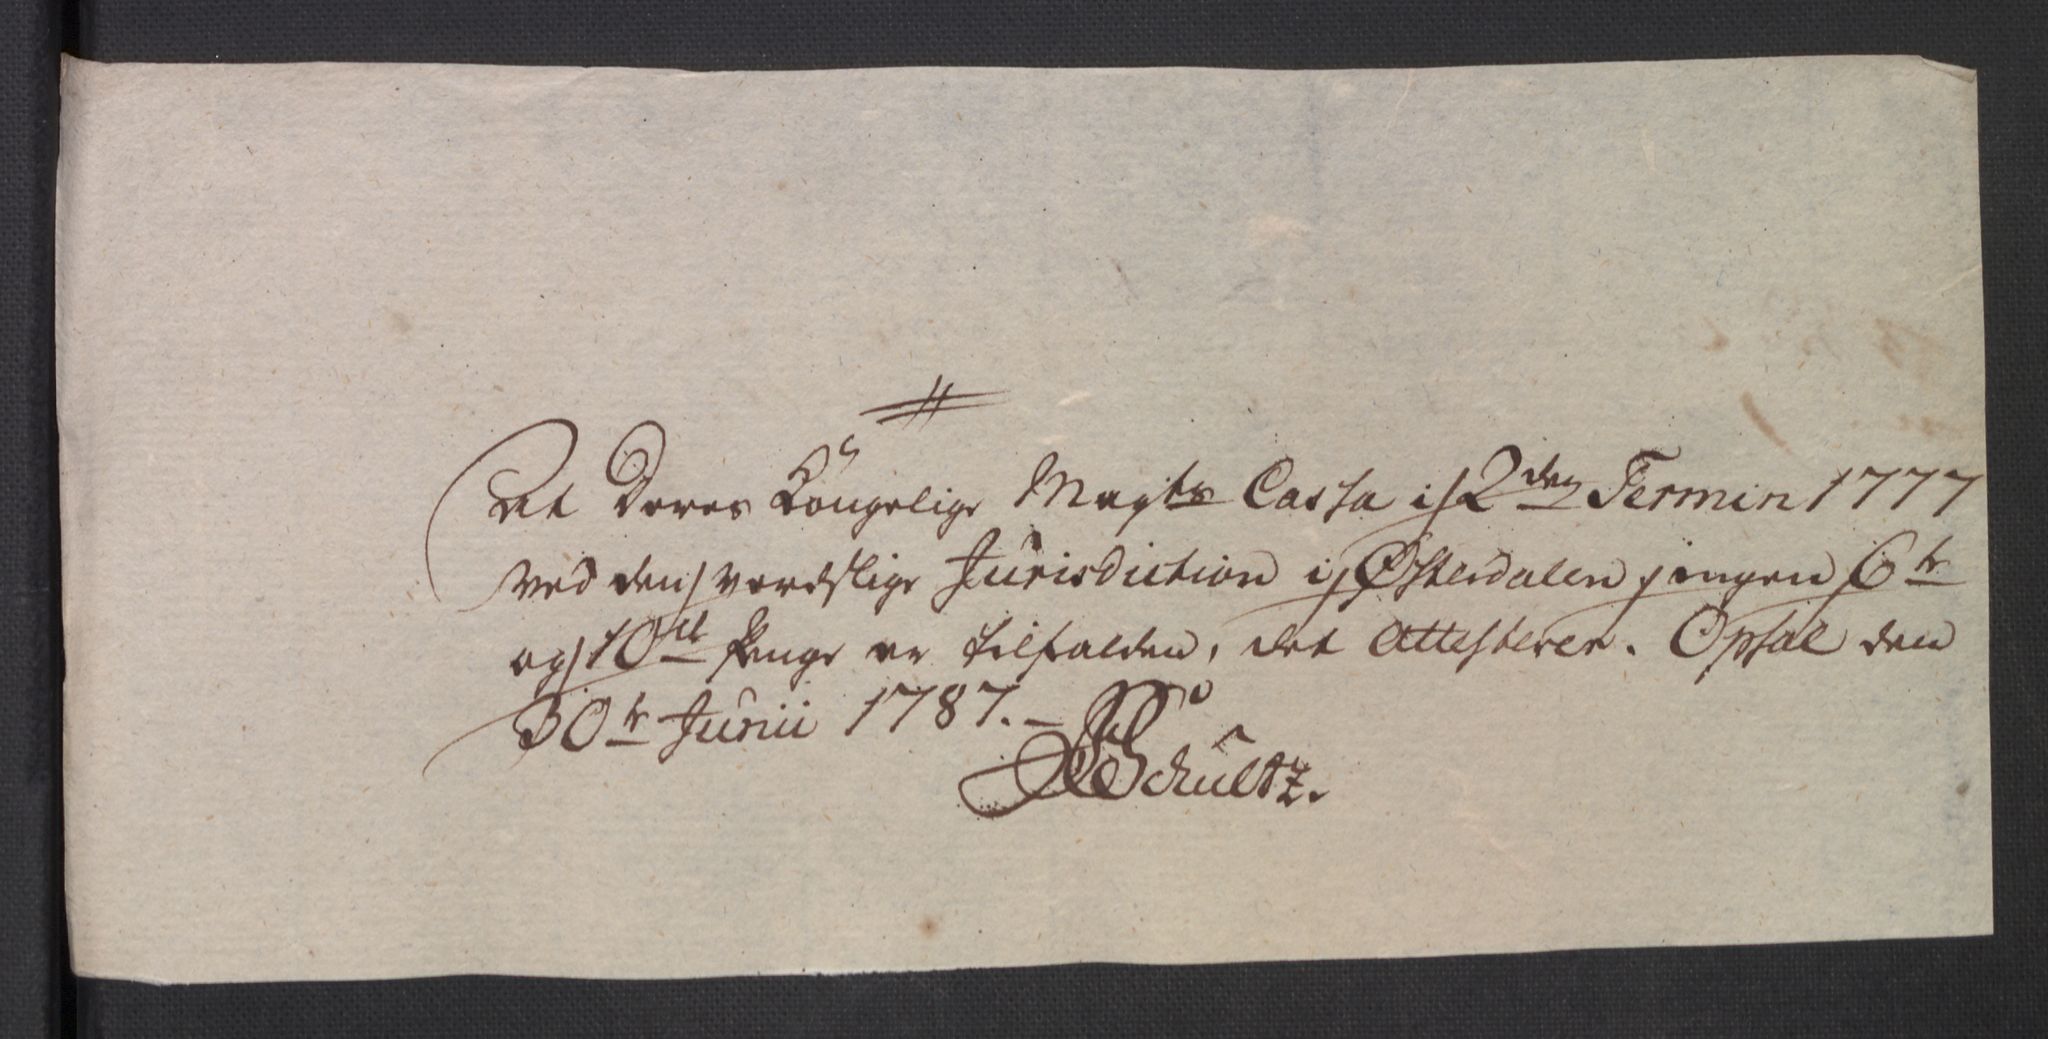 At Deres Kongelige Mayts Cassa i 2den Termin 1777
ved den verdslige Jurisdiction i Østerdalen ingen 6te
og 10de Penge er tilfalden, det Attesterer. Opsal den
30te Junii 1787.
Schultz.